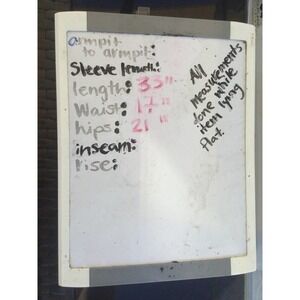 armpit
to armpit:
Sleeve length:
length: 33"
Waist: 17"
hips: 21"
inseam:
rise:
All
measurements
done while
item lying
flat.